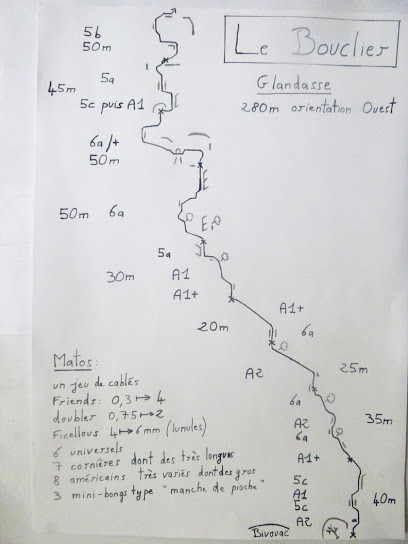 Le Bouclier
Glandasse
280m orientation Ouest
5b
50m
5a
45m
5c puis A1
6a/+
50m
50m 6a
5a
30m A1
A1+
A1+
20m
6a
A2
25m
6a
35m
A2
6a
A1+
5c
A1
40m
5c
A2
Bivouac
Matos:
un jeu de cablés
Friends: 0,3 ↦ 4
doubler 0,75 ↦ 2
Ficellous 4 ↦ 6mm (lunules)
6 universels
7 cornières dont des très longues
8 américains très variés dont des gros
3 mini-bongs type "manche de pioche"